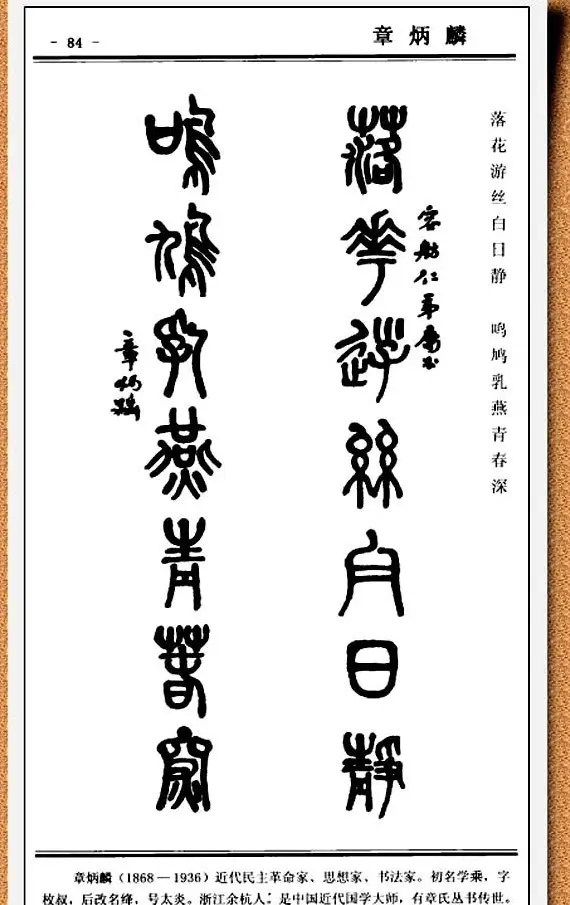 - 84 -
章炳麟
落花游丝白日静 鸣鸠乳燕青春深
落花游丝白日静
鸣鸠乳燕青春深
章炳麟
章炳麟(1868—1936)近代民主革命家、思想家、书法家。初名学乘,字
枚叔,后改名绛,号太炎。浙江余杭人。是中国近代国学大师,有章氏丛书传世。